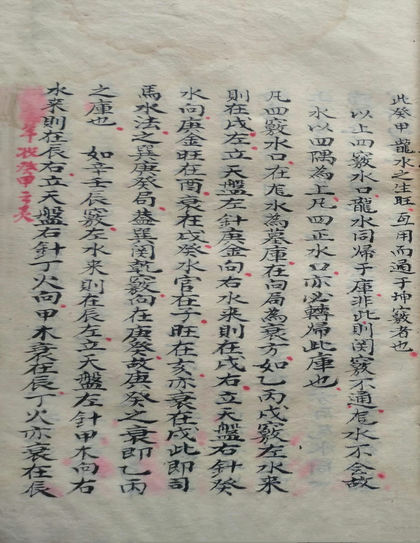 此癸甲龍水之生旺互用而通于坤竅者也
以上四竅水口龍水同歸于庫非此則関竅不通尨水不會故
水以四隅為上凡四正水口亦必轉歸此庫也
凡四竅水口在尨水為墓庫在向局為衰方如乙丙戌竅左水来
則在戌左立天盤左針庚金向右水来則在戌右立天盤右針癸
水向庚金旺在酉衰在戌癸水官在子旺在亥亦衰在戌此即司
馬水法之巽庚癸局蓋巽関竅向在庚癸故庚癸之衰即乙丙
之庫也 如辛壬辰竅左水来則在辰左立天盤左針甲木向右
水来則在辰右立天盤右針丁火向甲木衰在辰丁火亦衰在辰
癸甲